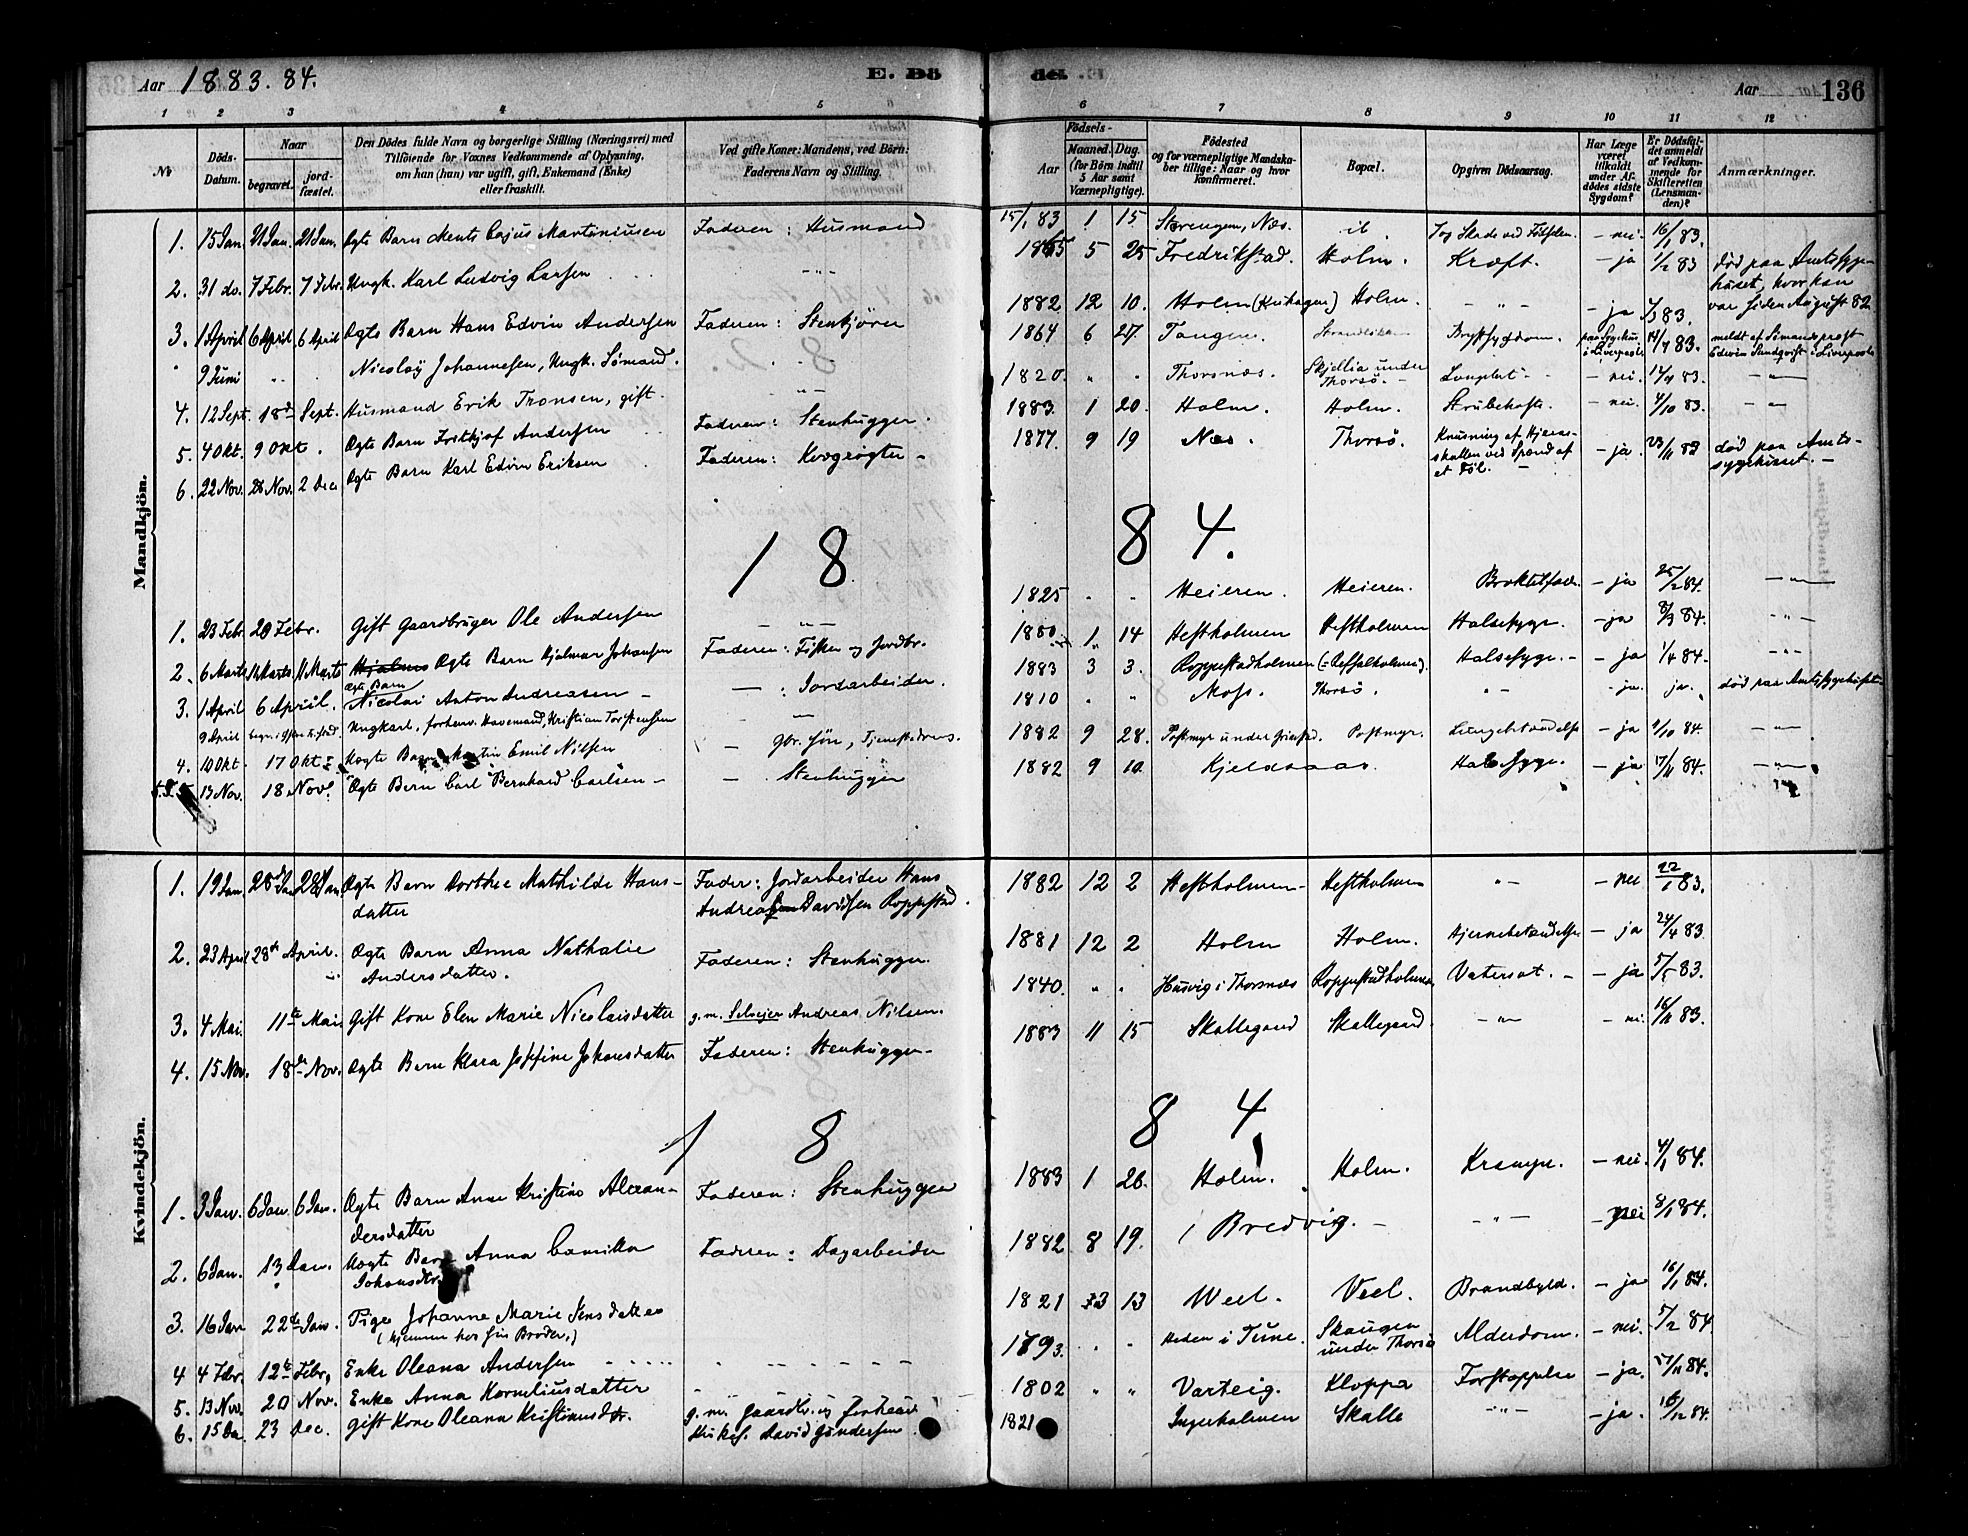 Aar 1883. 84.
E. Dö
de. E
Aar
136
1 2 3 4 5 6 7 8 9 10 11 12
No
Döds-Datum.
Naar
begravet.
jord-fæstet.
Den Dödes fulde Navn og borgerlige Stilling (Næringsvei) med
Tilföiende for Voxnes Vedkommende af Oplysning,
om han (hun) var ugift, gift, Enkemand (Enke)
eller fraskilt.
Ved gifte Koner: Mandens, ved Börn:
Faderens Navn og Stilling.
Födsels-
Aar
Maaned. Dag.
(for Börn indtil
5 Aar samt
Værnepligtige).
Födested
og for værnepligtige Mandska-
ber tillige: Naar og hvor
konfirmeret.
Bopæl.
Opgiven Dödsaarsag.
Har Læge
været
tilkaldt
under Af-
dödes sidste
Sygdom?
Er Dödsfal-
det anmeldt
af Vedkom-
mende for
Skifteretten
(Lensman-
den)?
Anmærkninger.
Mandkjön.
1. 15 Jan. 21 Jan. 21 Jan. Ægte Barn Ments Cajus Martiniusen Faderen: Husmand 15/1 83 1 15 Størengen, Næs. ib. Tog Skade ved Fødselen. – nei. 16/1 83.
2. 31 do. 7 Febr. 7 Febr. Ungk. Karl Ludvig Larsen – " – 1865 5 25 Fredrikstad. Holm. Kræft. – ja 1/2 83 død paa Amtssyge-
huset, hvor han
var siden August 82
3. 1 April 6 April 6 April Ægte Barn Hans Edvin Andersen Faderen: Stenkjører 1882 12 10. Holm Holm. – " – – ja 83.
" 9 Juni Nicolay Johannesen, Ungk. Sømand. 1864 6 27. Tangen. Brystsygdom. paa Sygehus i Liverpool 14/7 83. meldt af Sømandsprest
Edvin Lundqvist i Liverpool
4. 12 Sept. 18de Sept. Husmand Erik Tronsen, gift. – " – 1820. " " Thorsnæs. Skjellia under
Thorsö. – – nei. 83. – " –
5. 4 Okt. 9 Okt. Ægte Barn Frithjof Andersen Faderen: Stenhugger. 1883. 1 20. Holm. Holm. Strubehoste. – nei. 4/10 83. – " –
6. 22 Nov. 28 Nov. 2 Dec Ægte Barn Karl Edvin Eriksen Faderen: Kvægrøgter – 1877 9 19 Næs. Thorsö. Knusning af Hjerne-
skallen ved Spænd af
et Føl. – – ja. 23/11 83 død paa Amts-
sygehuset. –
18 84.
1. 23 Febr. 28 Febr. Gift Gaardbruger Ole Andersen – " – 1825 " " Heieren. Heieren. – ja 25/2 84. – " –
2. 6 Marts 11 Marts 11 Marts Hjalmar Ægte Barn Hjalmar Johansen Faderen: Fisker og Jordbr. 1880 1. 14 Hestholmen Hestholmen Halssyge. – ja 8/3 84. – " –
3. 1 April 6 April. Ægte Barn
Nicolai Anton Andreasen – – : Jordarbeider. 1883 3 3. Roppestadholmen Halssyge. – – ja 1/4 84. – " –
9 April Ungkarl, forhenv. Havemand, Kristian Torstensen – " – 1810 " " Moss. Thorsö. " – – ja. ja. død paa Amtssygehuset –
4. 10 Okt. 17 Okt. Uægte Barn Emil Nilsen – Gbr. Søn, 1882 9 28. Postmyr. – ja 84. – " –
13 Nov. 18 Nov. Ægte Barn Carl Bernhard Carlsen – – Stenhugger 1882 9 10 Kjeldsaas. Halssyge. – ja 17/11 84. – " –
Kvindekjön.
1. 19 Jan. 28 Jan. 28 Jan. Ægte Barn Dorthee Mathilde Hans-
datter Fader: Jordarbeider Hans
Andreas Davidsen Roppestad. 1882 12 2 Hestholmen – Hestholmen " – – nei 22/1 83.
2. 23 April 28de April. Ægte Barn Anna Nathalie
Andersdatter. Faderen: Stenhugger. 1881 12 2 Holm Holm. Hjernebetændelse – ja 24/4 83.
3. 4 Mai. 11te Mai. Gift Kone Elen Marie Nicolaisdatter g. m. Selveier Andreas Nilsen. 1840. " " Husvig i Thorsnæs Roppestadholmen Vatersot. – – ja 5/5 83.
4. 15 Nov. 18de Nov. Ægte Barn Klara Josefine Johansdatter Faderen: Stenhugger – 1883 11 15 Skallegaard Skallegaard. – " – – nei. 16/11 83.
18 84
1. 3 Jan. 6 Jan. 6 Jan. Ægte Barn Anne Kristine Alexan-
dersdatter Faderen: Stenhugger 1883 1 26. Holm. Holm. Krampe. – nei. 4/1 84.
2. 6 Jan. 13 Jan. Uægte Barn Anna Camilla
Johansdtr. Faderen: Dagarbeider 1882 8 19. Bredvig. – – " – – nei 8/1 84.
3. 16 Jan 22de Jan. Pige Johanne Marie Jensdatter
(hjemme hos sin Broder.) 1821 3 13 Weel. Veel. Brandbyld. – ja 16/1 84.
4 4 Febr. 12te Febr. Enke Oleana Andersen 1793. " " Heden i Tune. Skaugen
under Thorsö Alderdom. – nei. 5/2 84
5. 13 Nov. 20 Nov. Enke Anna Korneliusdatter 1802 " " Varteig. Kloppa Forstoppelse – ja. 84.
6. 15 Dec. 23 Dec. Gift Kone Oleana Kristiansdtr. g. m. Gaardbr. og forhenv.
Kirkes. David Gundersen 1821 Ingerholmen Skalle " – – ja. 16/12 84.